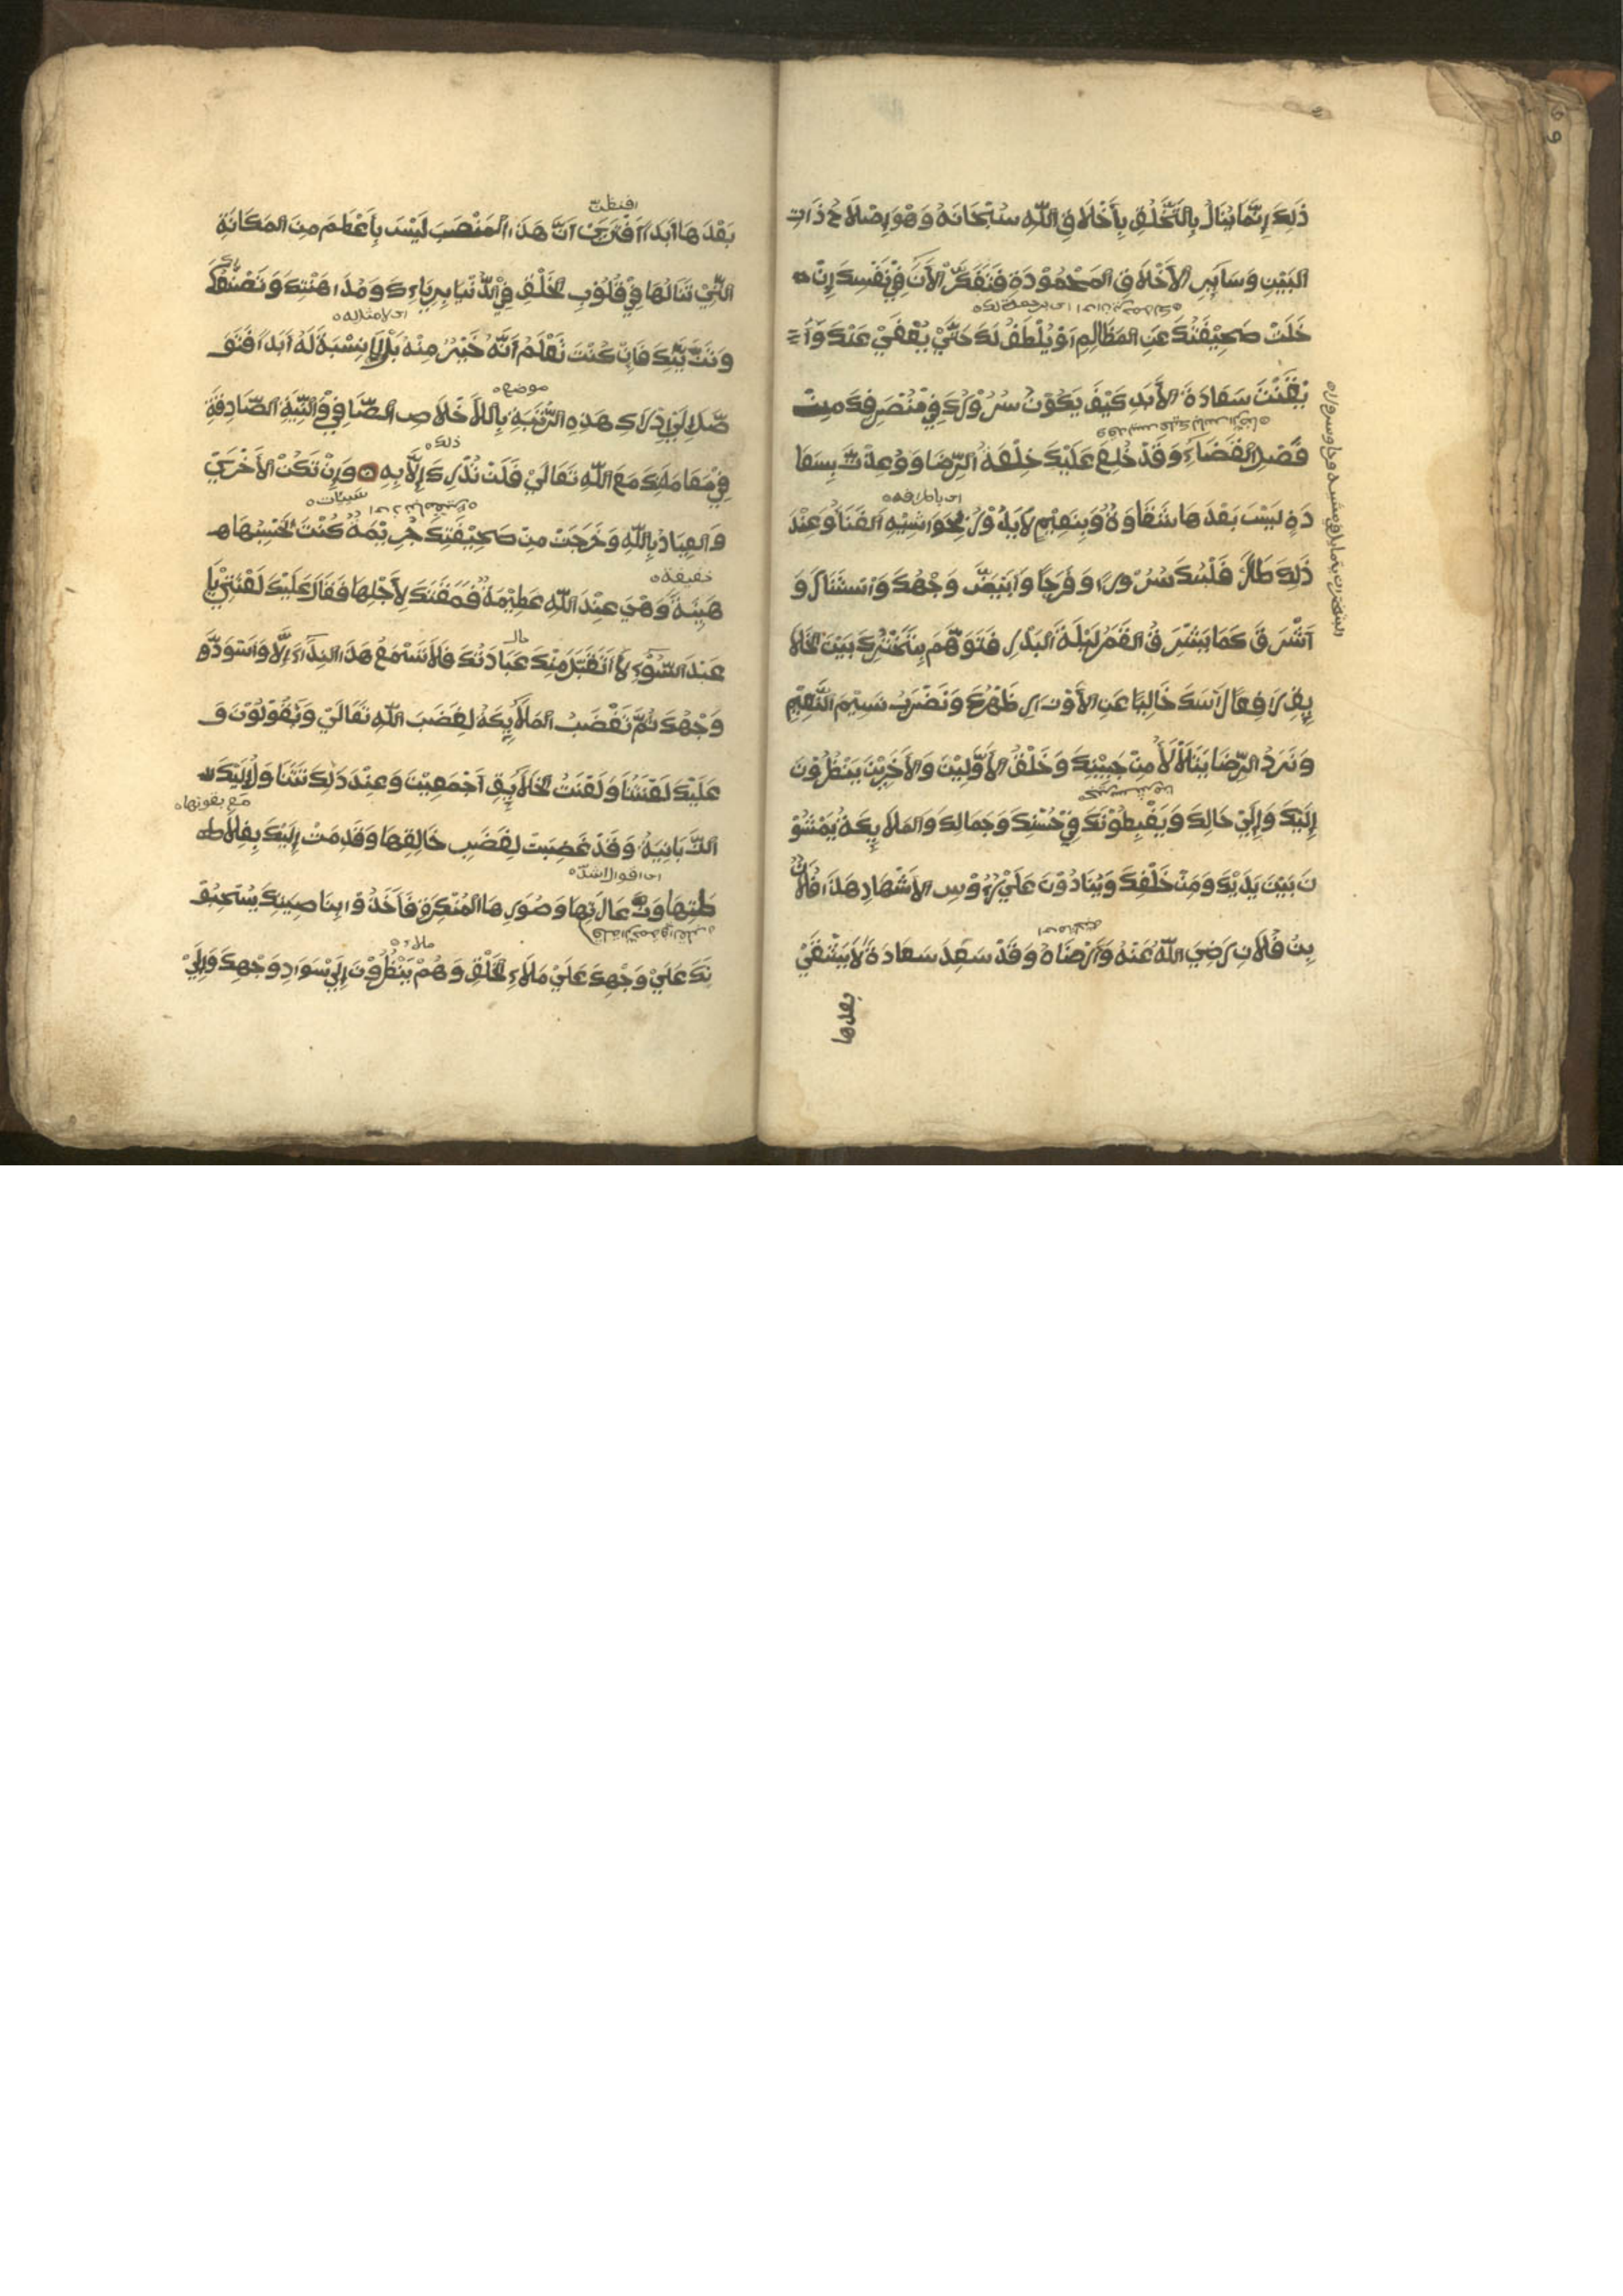 ذَلِكَ إِنَّمَا يُنَالُ بِالتَّخَلُّقِ بِأَخْلَاقِ اللّٰهِ سُبْحَانَهُ وَهُوَ إِصْلَاحُ ذَاتِ
البَيْنِ وَسَايِرِ الأَخْلَاقِ المَحْمُوْدَةِ فَتَفَكَّرِ الأَنَ فِيْ نَفْسِكَ إِنْ
خَلَتْ صَحِيْفَتُكَ عَنِ المَظَالِمِ أَوْ يُلْطَفُ لَكَ حَتَّيْ يُعْفَيْ عَنْكَ وَأَ
يْقَنْتَ سَعَادَةَ الأَبَدِ كَيْفَ يَكُوْنُ سُرُوْرُكَ فِيْ مُنْصَرِفِكَ مِنْ
فَصْلِ القَضَاءِ وَقَدْ خُلِعَ عَلَيْكَ خِلْعَةُ الرِّضَا وَوُعِدْتَ بِسَعَا
دَةٍ لَيْسَ بَعْدَهَا شَقَاوَةٌ وَبِنَعِيْمٍ لَا يَدُوْرُ بِحَوَاشِيْهِ الفَنَاوُ وَعِنْدَ
ذَلِكَ طَارَ قَلْبُكَ سُرُوْرًا وَفَرَحًا وَابْيَضَّ وَجْهُكَ وَاسْتَنَارَ وَ
اَشْرَقَ كَمَا يُشْرِقُ القَمَرُ لَيْلَةَ البَدْرِ فَتَوَهَّمْ بِتَبَخْتُرِكَ بَيْنَ الخَلَا
يِقِ رَافِعًا رَاسَكَ خَالِيًا عَنِ الأَوْزَارِ ظَهْرُكَ وَنَضْرَتُ نَسِيْمِ النَّعِيْمِ
وَبَرْدُ الرِّضَا يَتَلَأْلَأُ مِنْ جَبِيْنِكَ وَخَلْقُ الأَوَّلِيْنَ وَالأَخِرِيْنَ يَنْظُرُوْنَ
إِلَيْكَ وَإِلَيْ حَالِكَ وَيَغْبِطُوْنَكَ فِيْ حُسْنِكَ وَجَمَالِكَ وَالمَلَايِكَةُ يَمْشُوْ
نَ بَيْنَ يَدَيْكَ وَمِنْ خَلْفِكَ وَيُنَادُوْنَ عَلَيْ رُؤُوْسِ الأَشْهَادِ هَذَا فُلَانُ
بْنُ فُلَانٍ رَضِيَ اللّٰهُ عَنْهُ وَأَرْضَاهُ وَقَدْ سَعِدَ سَعَادَةً لَا يَشْقَيْ
بعدها
افتظن
بَعْدَهَا أَبَدًا أَفَتَرَيْ أَنَّ هَذَا المَنْصَبَ لَيْسَ بِأَعْظَمَ مِنَ المَكَانَةِ
الَّتِيْ تَنَالُهَا فِيْ قُلُوْبِ الخَلْقِ فِيْ الدُّنْيَا بِرِيَاءِكَ وَمُدَاهَنَتِكَ وَتَصَنُّعِكَ
اى لا مثال له
وَتَزَيُّنِكَ فَإِنْ كُنْتَ تَعْلَمُ أَنَّهُ خَيْرٌ مِنْهُ بَلْ لَا نِسْبَةَ لَهُ أَبَدًا فَتَوَ
موضع
صَّلْ إِلَيْ إِدْرَاكِ هَذِهِ الرُّتْبَةِ بِالإِخْلَاصِ الصَّافِيْ وَالنِّيَّةِ الصَّادِقَةِ
ذلك
فِيْ مُعَامَلَتِكَ مَعَ اللّٰهِ تَعَالَيْ فَلَنْ تُدْرِكَ إِلَّا بِهِ وَإِنْ تَكُنْ الأُخْرَيْ
سيئات
وَالعِيَاذُ بِاللّٰهِ وَخَرَجَتْ مِنْ صَحِيْفَتِكَ جَرِيْمَةٌ كُنْتَ تَحْسِبُهَا
خفيفة
هَيِّنَةً وَهِيَ عِنْدَ اللّٰهِ عَظِيْمَةٌ فَمَقَتَكَ لِأَجْلِهَا فَقَالَ عَلَيْكَ لَعْنَتِيْ يَا
عَبْدَ السُّوْءِ لَا أَتَقَبَّلُ مِنْكَ عِبَادَتُكَ فَلَا تَسْمَعُ هَذَا النِّدَاءَ إِلَّا وَاسْوَدَّ
وَجْهُكَ ثُمَّ تَغْضَبُ المَلَايِكَةُ لِغَضَبِ اللّٰهِ تَعَالَيْ وَيَقُوْلُوْنَ وَ
عَلَيْكَ لَعْنَتُنَا وَلَعْنَتُ الخَلَايِقِ أَجْمَعِيْنَ وَعِنْدَ ذَلِكَ تَنْثَالُ إِلَيْكَ
الزَّبَانِيَةُ وَقَدْ غَضِبَتْ لِغَضَبِ خَالِقِهَا وَقَدِمَتْ إِلَيْكَ بِفِظَاظَ
ظَتِهَا وَزَعَارَتِهَا وَصُوَرِهَا المُنْكِرَةِ فَأَخَذُوْا بِنَاصِيَتِكَ يَسْحَبُوْ
نَكَ عَلَيْ وَجْهِكَ عَلَيْ مَلَاءِ الخَلْقِ وَهُمْ يَنْظُرُوْنَ إِلَيْ سَوَادِ وَجْهِكَ وَإِلَيْ